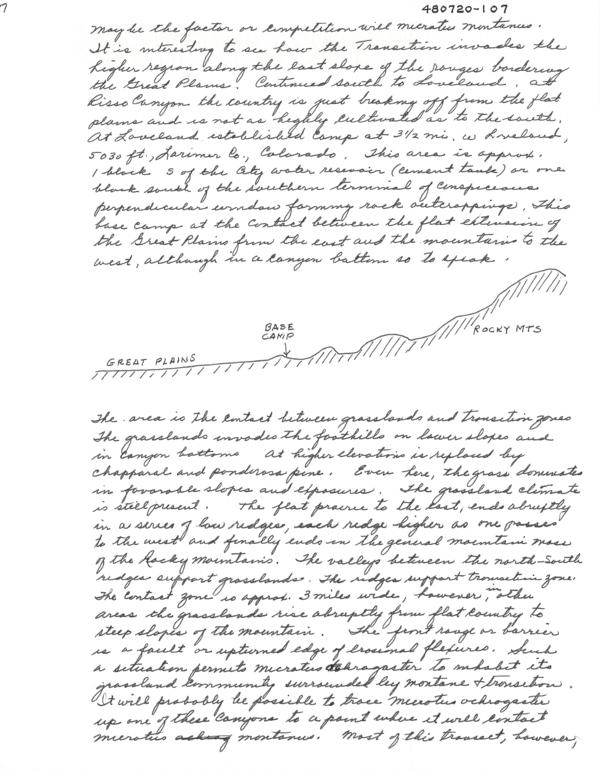 480720-107
may be the factor or competition will microtus montanus.
It is interesting to see how the Transition invades the
higher region along the east slope of the ranges bordering
the Great Plains. Continued south to Loveland. at
Risso Canyon the country is just breaking off from the flat
plains and is not as highly cultivated as to the south.
At Loveland established camp at 3½ mi. W Loveland,
5030 ft., Larimer Co., Colorado. This area is approx.
1 block S of the City water resevoir (cement tank) or one
block south of the southern terminal of conspiceous
perpendicular window forming rock outcroppings. This
base camp at the contact between the flat extension of
the Great Plains from the east and the mountains to the
west, although in a canyon bottom so to speak.
BASE
CAMP
GREAT PLAINS
ROCKY MTS
The area is the contact between grasslands and transition zones
The grasslands invades the foothills on lower slopes and
in canyon bottoms At higher elevations is replaced by
chapparal and ponderosa pine. Even here, the grass dominates
in favorable slopes and exposures. The grassland climate
is still present. The flat prairie to the east, ends abruptly
in a series of low ridges, each ridge higher as one passes
to the west and finally ends in the general mountain mass
of the Rocky Mountains. The valleys between the north-South
ridges support grasslands. The ridges support transition zone.
The contact zone is approx. 3 miles wide, however, in other
areas the grasslands rise abruptly from flat country to
steep slopes of the mountain. The front range or barrier
is a fault or upturned edge of flexures. Such
a situation permits microtus ochrogaster to inhabit its
grassland community surrounded by montane + transition.
It will probably be possible to trace microtus ochrogaster
up one of these canyons to a point where it will contact
microtus montanus. Most of this transect, however,